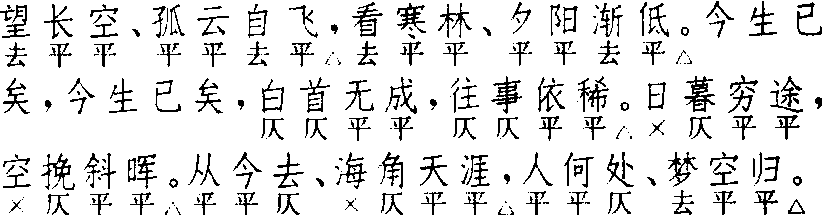 望长空、孤云自飞，看寒林、夕阳渐低。今生已
去平平 平平去平△去平平 平平去平△
矣，今生已矣，白首无成，往事依稀。日暮穷途，
仄仄平平 仄仄平平△×仄平平
空挽斜晖。从今去、海角天涯，人何处、梦空归。
×仄平平△平平仄 ×仄平平△平平仄 去平平△